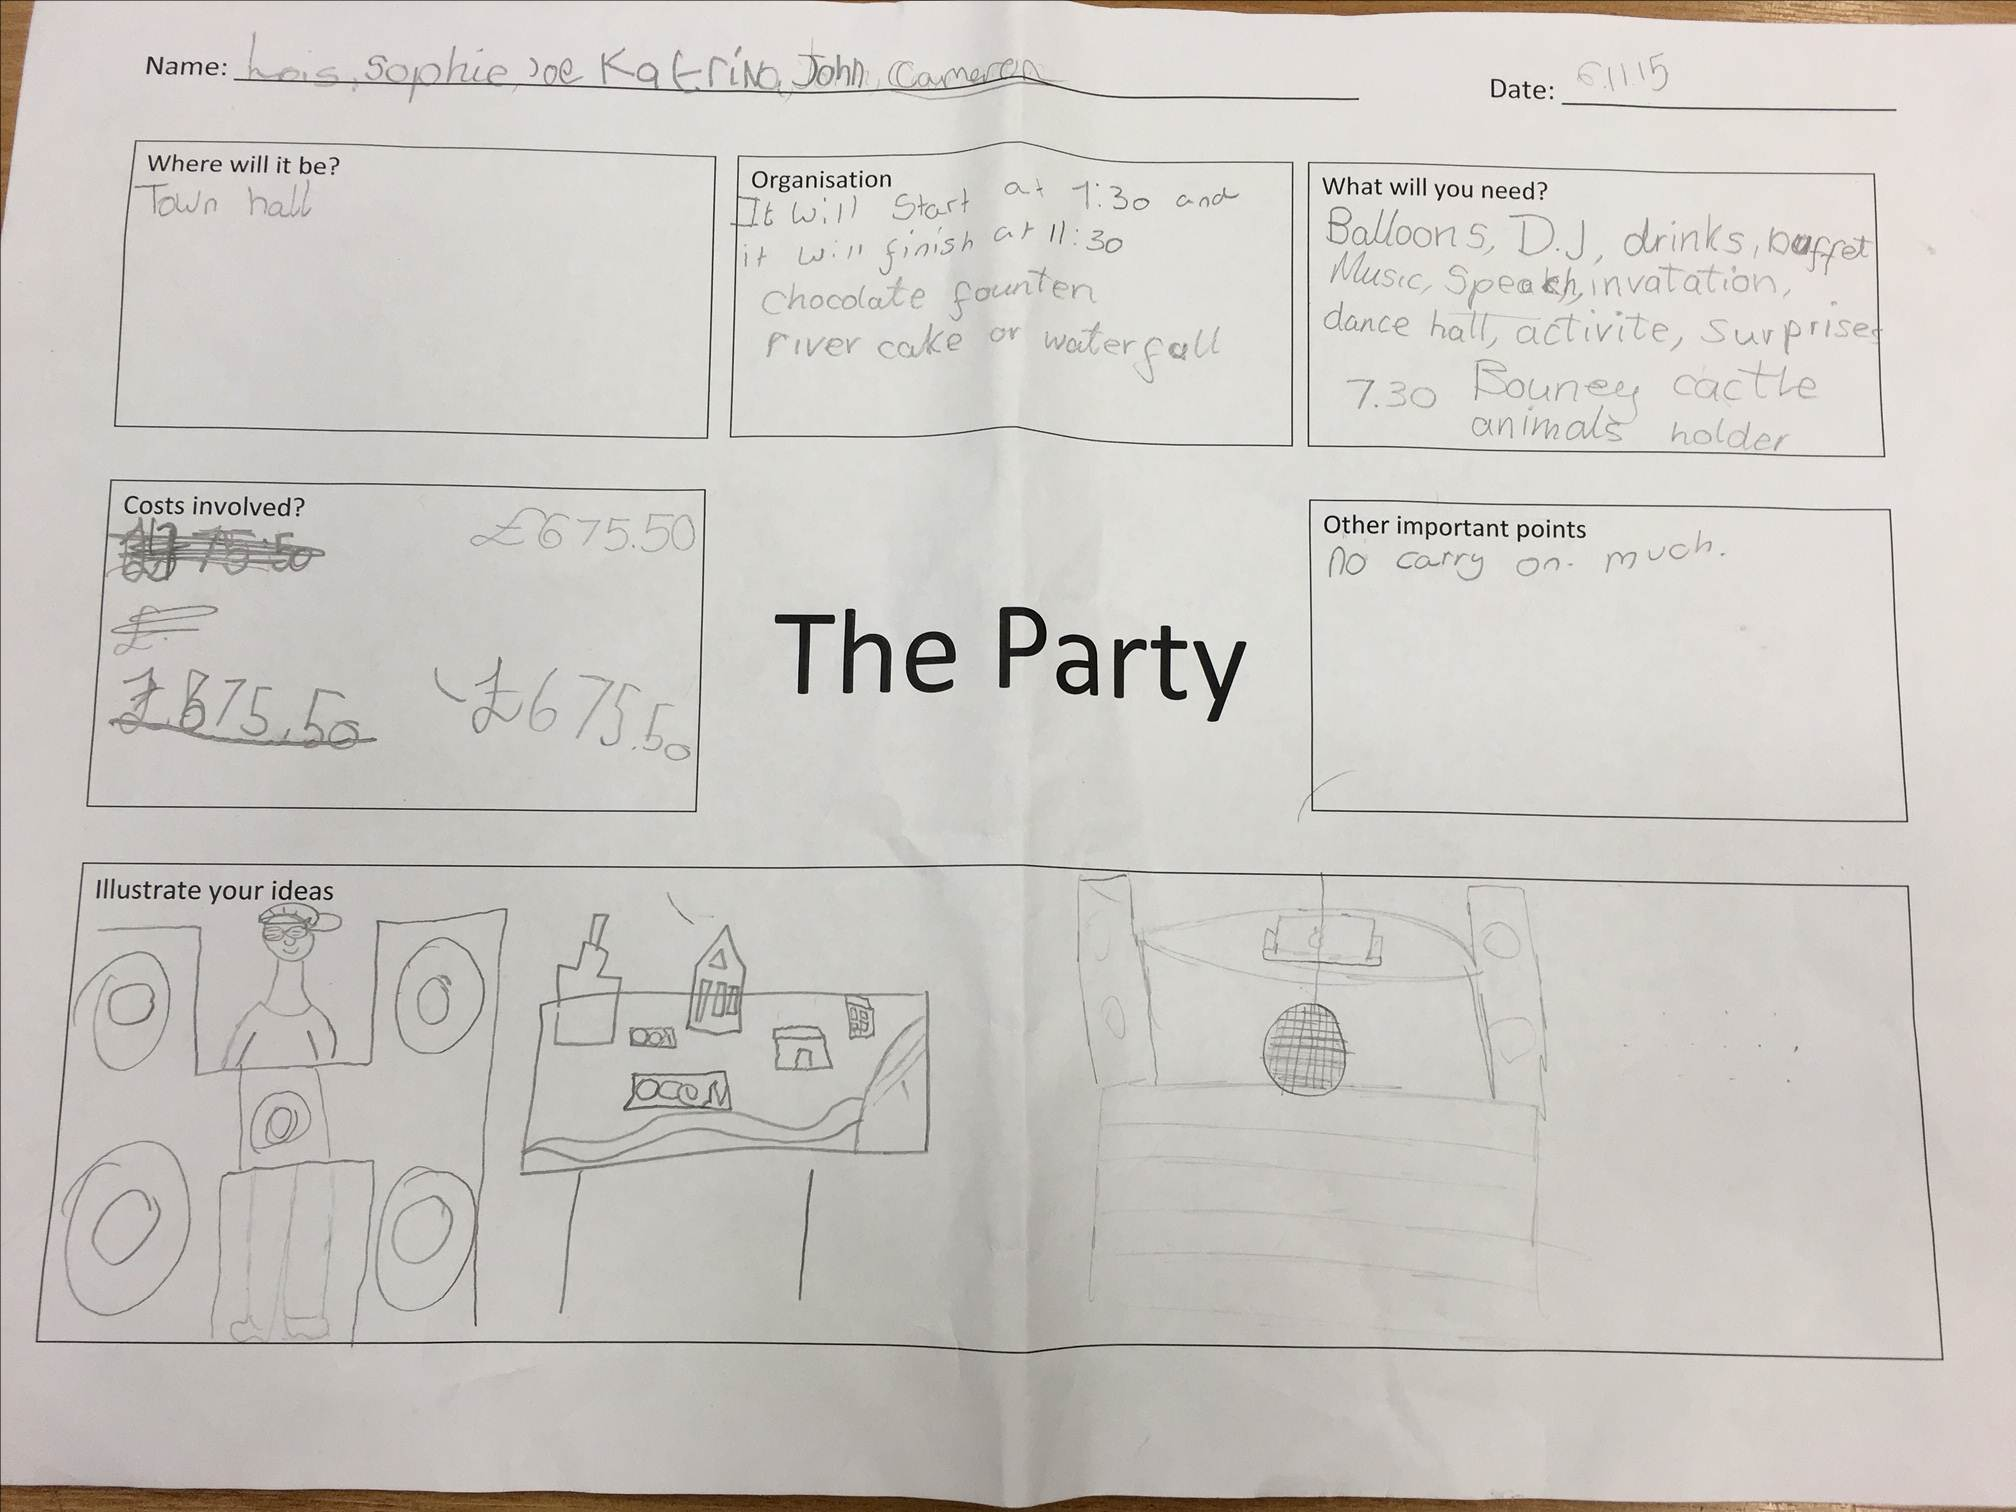 Name: Lois, Sophie, Joe Katrina, John, Cameren
Date: 6.11.15
Where will it be?
Town hall
Organisation
It will start at 7:30 and
it will finish at 11:30
chocolate founten
river cake or waterfall
What will you need?
Balloons, D.J, drinks, buffet
Music, Speakh, invatation,
dance hall, activite, surprises
7.30 Bouncy cactle
animals holder
Costs involved?
£675.50
£
£675.50
£675.50
The Party
Other important points
no carry on. much.
Illustrate your ideas